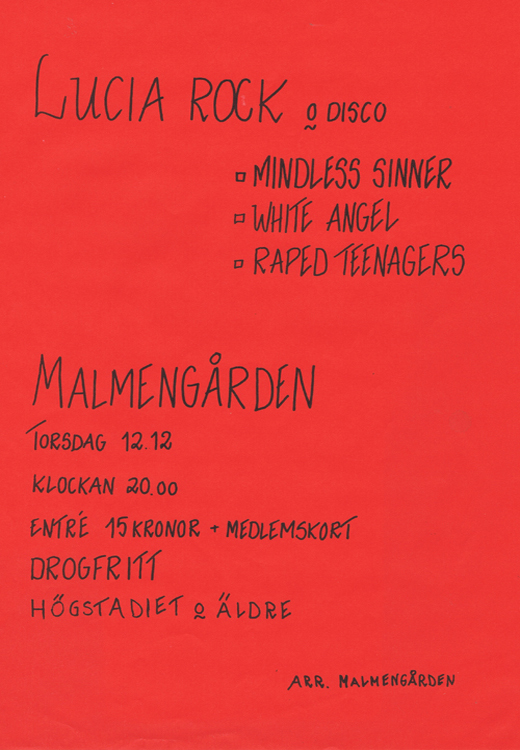 LUCIA ROCK o DISCO
MINDLESS SINNER
WHITE ANGEL
RAPED TEENAGERS
MALMENGÅRDEN
TORSDAG 12.12
KLOCKAN 20.00
ENTRÉ 15 KRONOR + MEDLEMSKORT
DROGFRITT
HÖGSTADIET o ÄLDRE
ARR. MALMENGÅRDEN